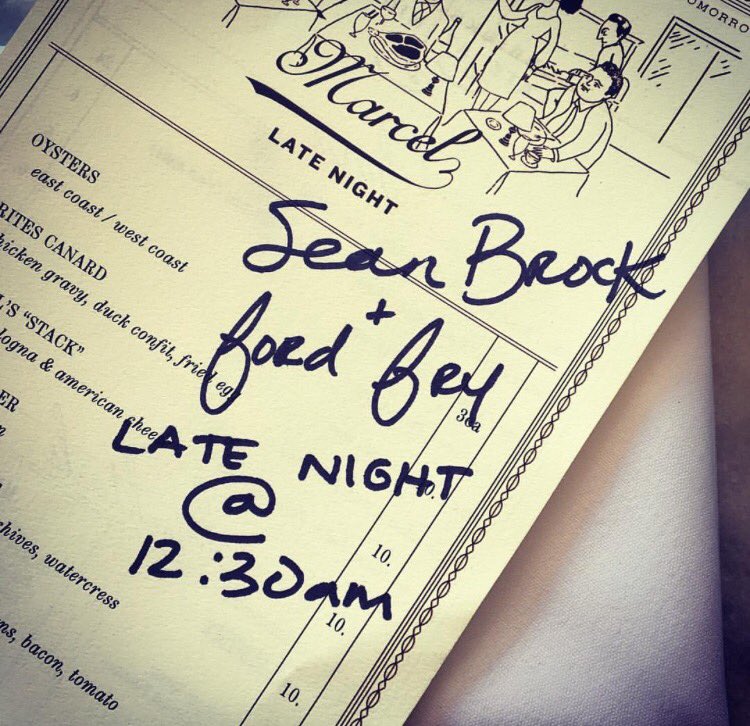 OMORRO
Marcel
LATE NIGHT
OYSTERS
east coast / west coast
3ea
RITES CANARD
hicken gravy, duck confit, fried egg
10.
L'S "STACK"
logna & american chee
10.
ER
10.
hives, watercress
10.
ns, bacon, tomato
Sean Brock
+
ford fry
LATE NIGHT
@
12:30am